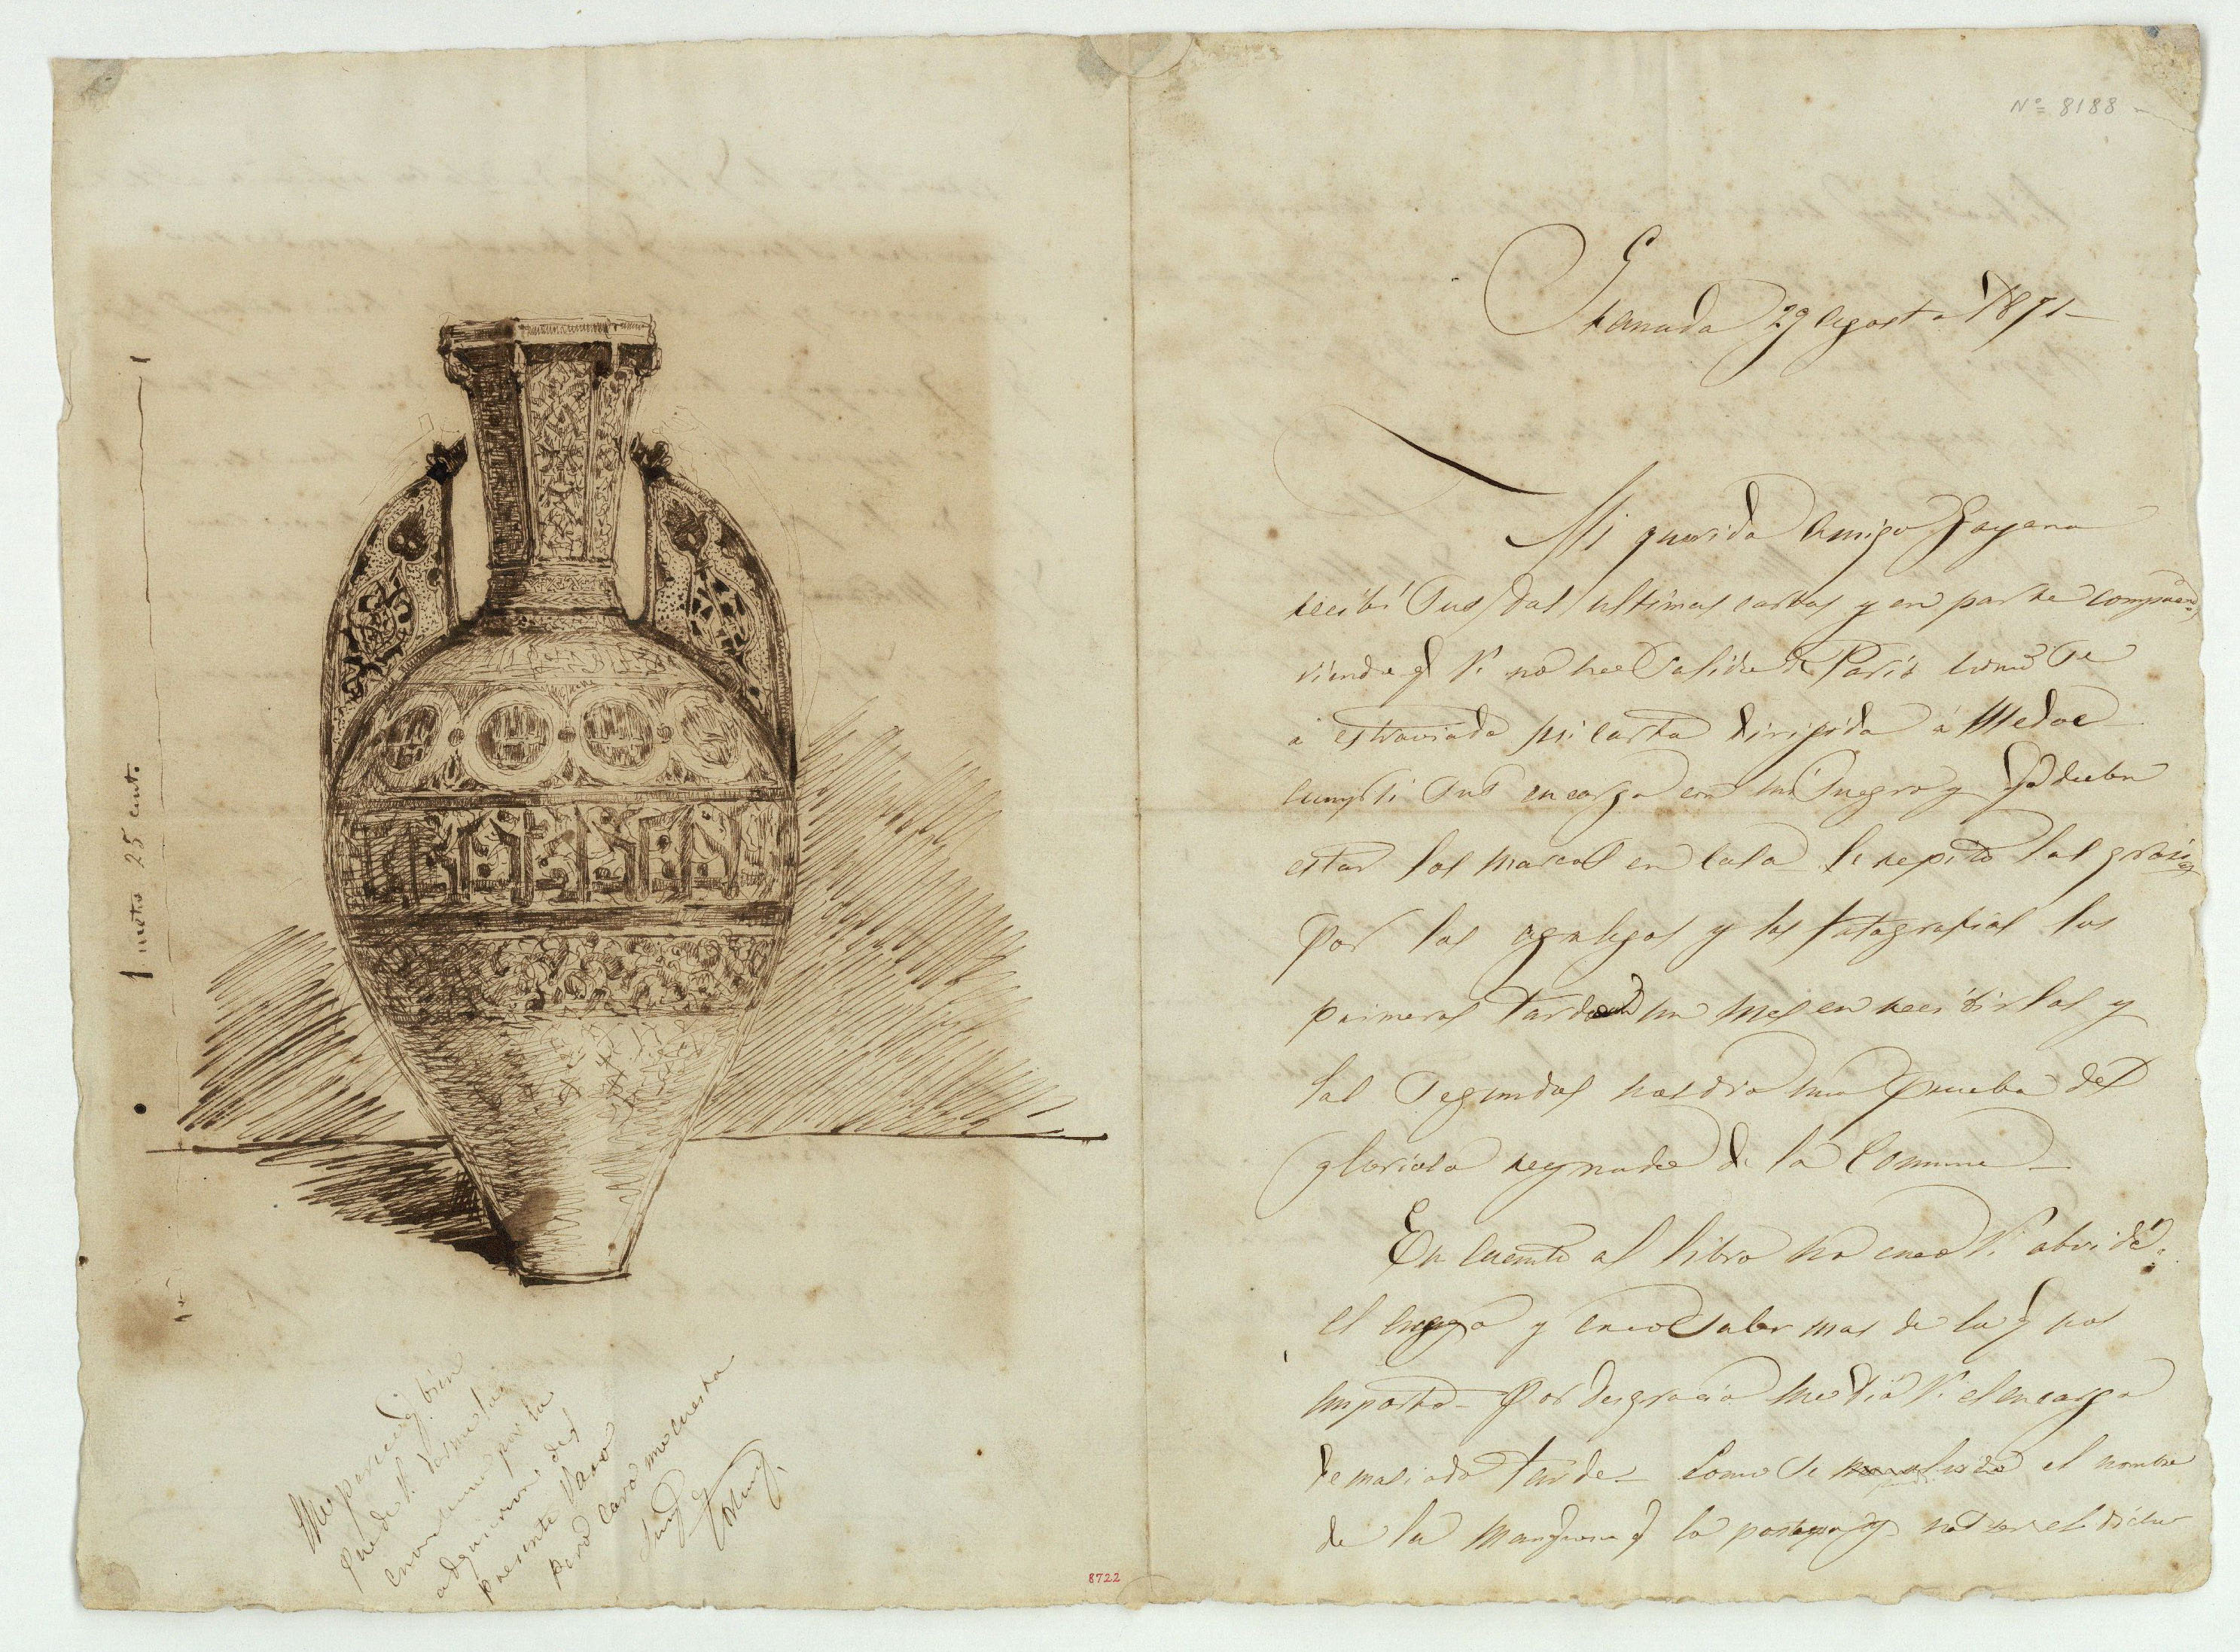 1 metro 25 cent.
Me parece q bien
puede V. darme la
enorabuena por la
adquicicion del
presente Vaso
pero caro me cuesta
Fortuny
8722
Nº 8188
Granada 29 Agosto 1871
Mi querido Amigo Goyena
recibi sus dos ultimas cartas y en parte compren
diendo q V. no ha salido de Paris como se
á estraviado mi carta dirigida á Medoc
cumpli sus encargo con mi suegro y ya deben
estar los marcos en casa le repito las gracias
por las agulejas y las fotografias las
primeras tardaron un mes en recibirlas y
las segundas nos dio una prueba del
glorioso reynado de la Comune
En cuanto al libro no crea V. olvidé
el encargo y creo saber mas de lo q nos
importa - Por desgracia me dió V. el encargo
demasiado tarde - Como se el nombre
de la Marquesa q lo